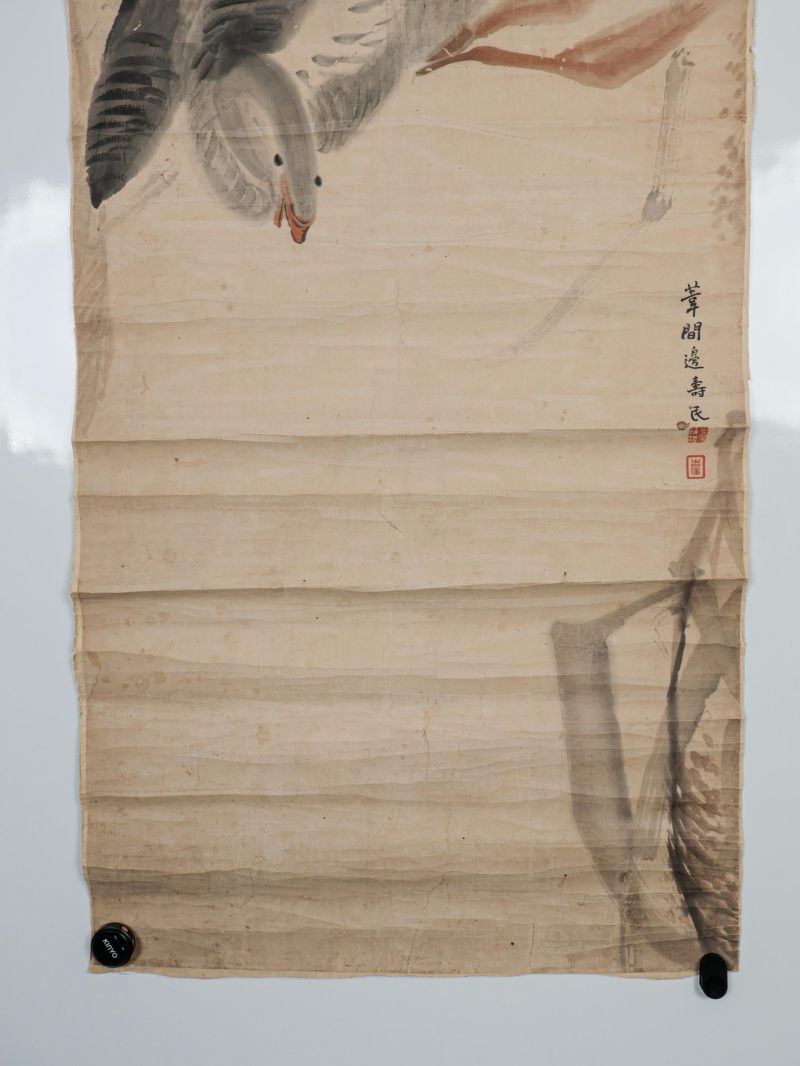 葦間邊壽民
KINYO